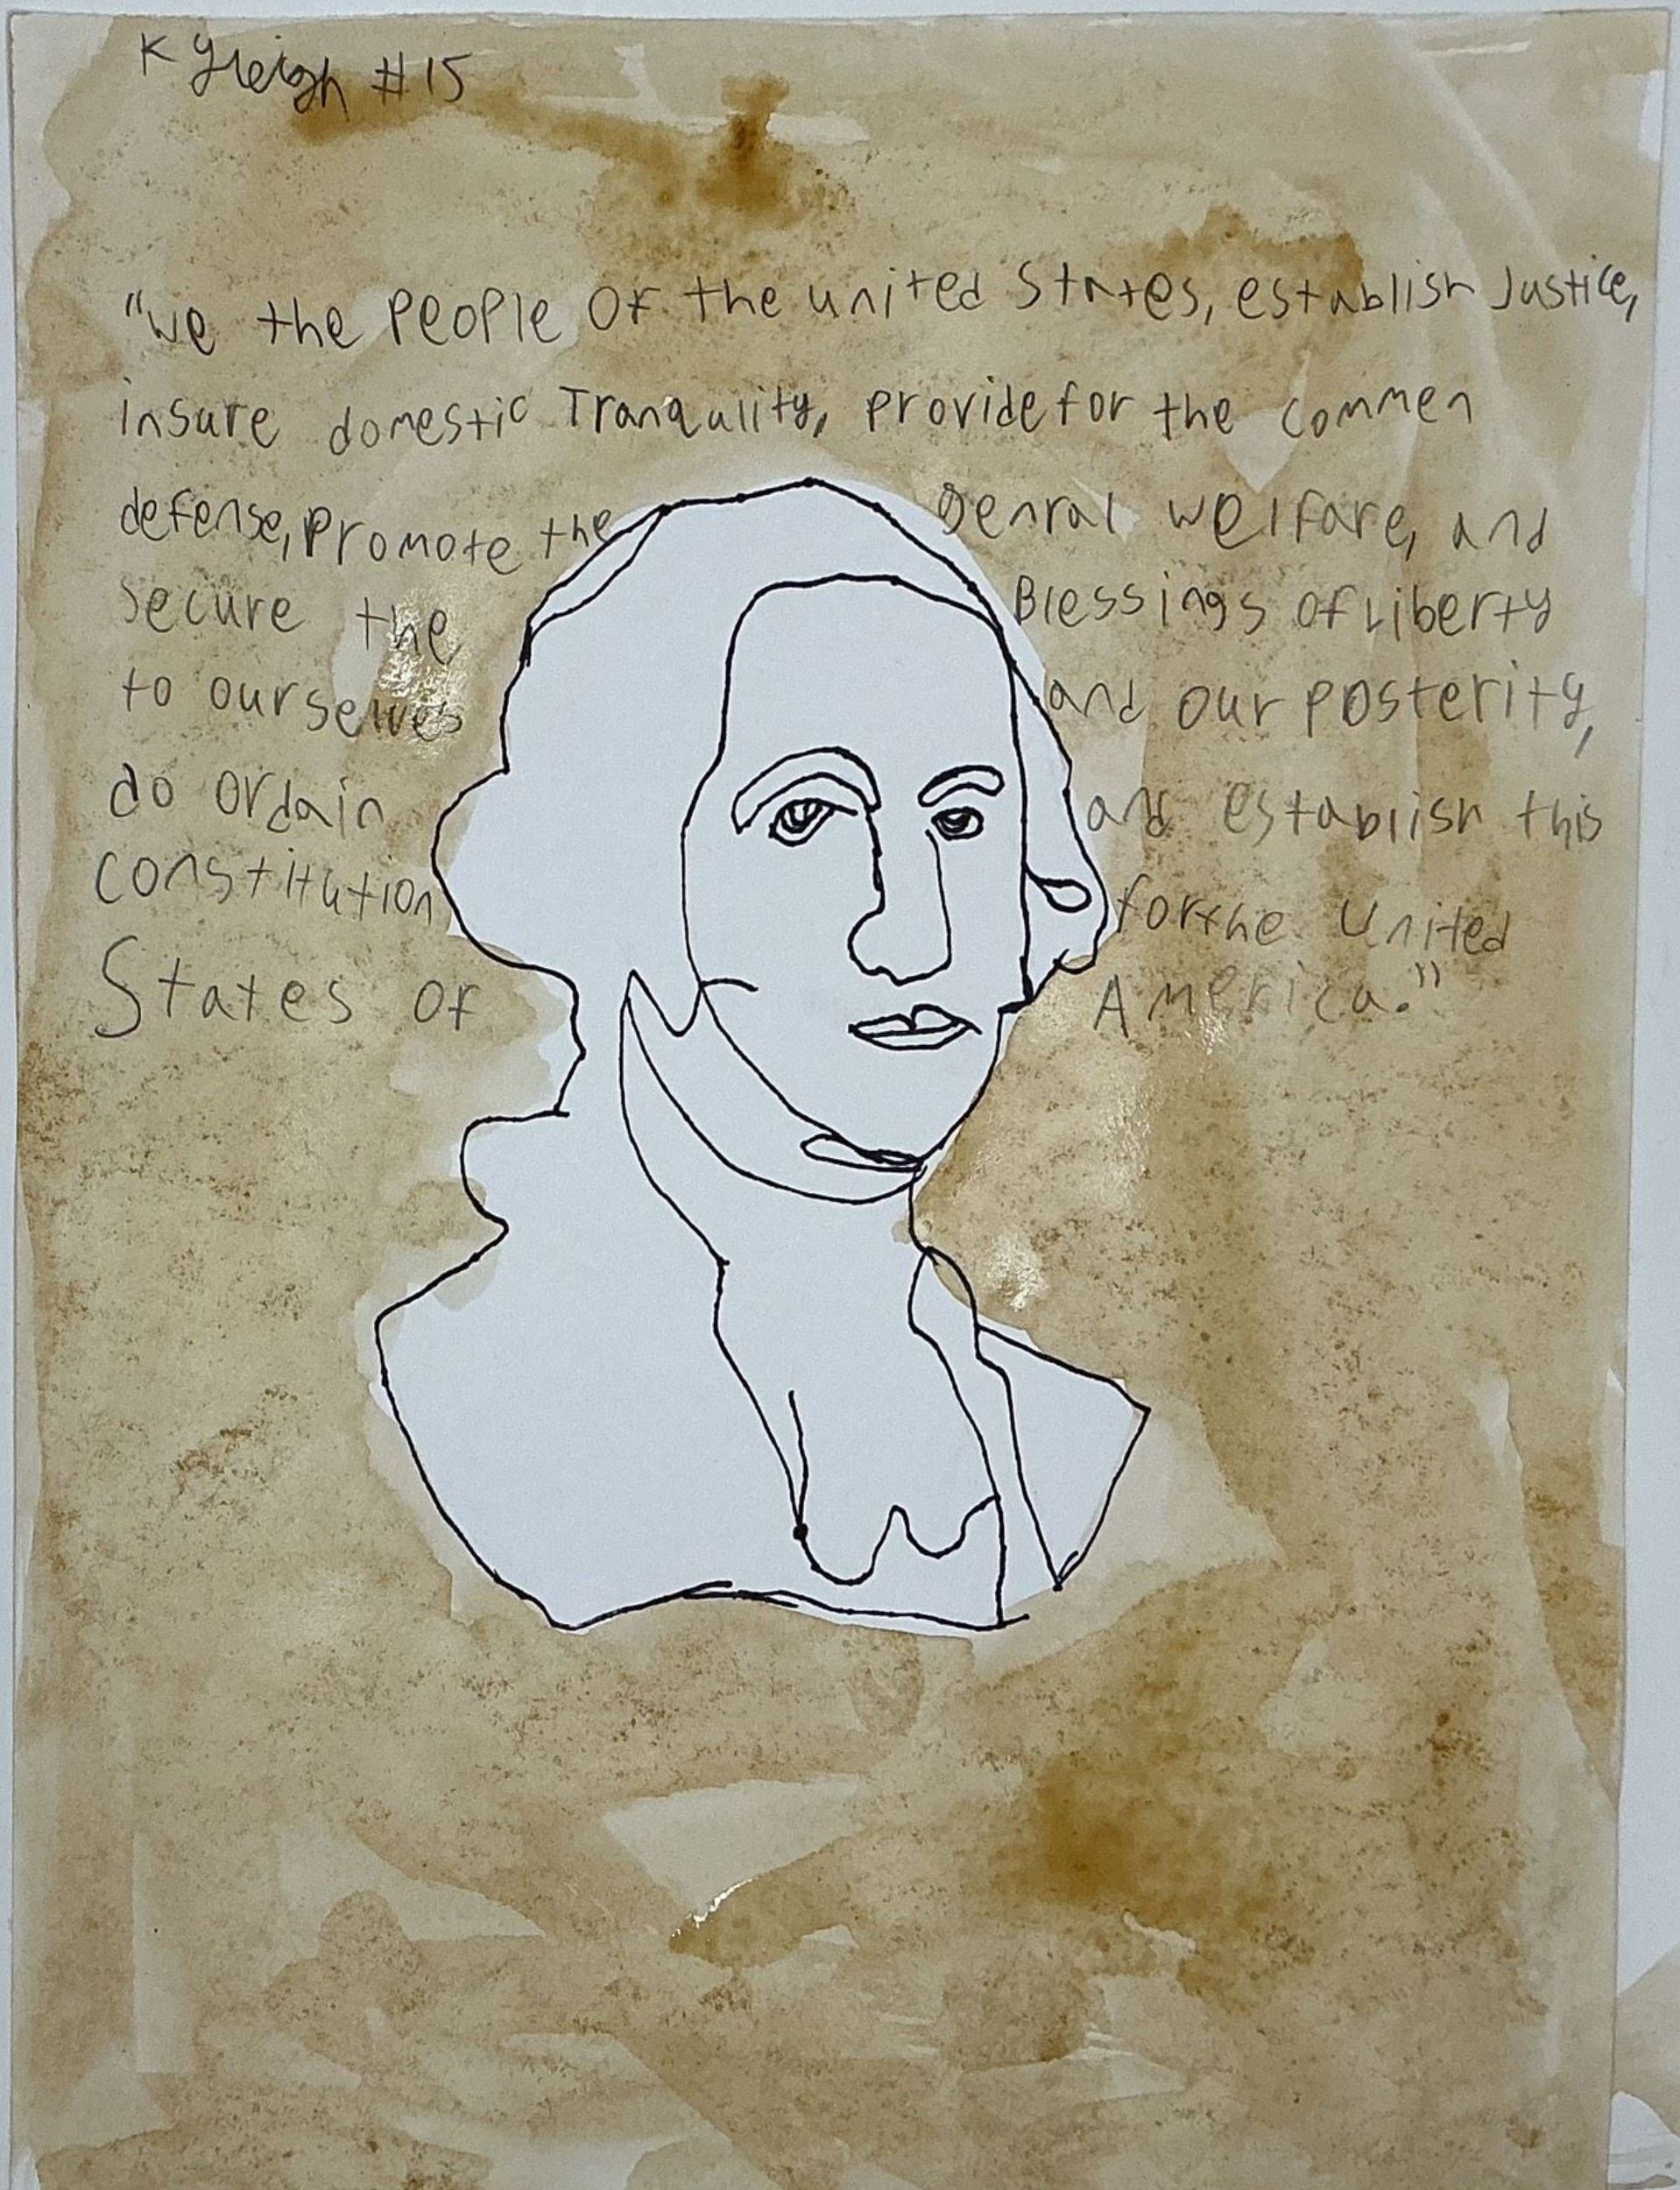 Kyleigh #15
"We the People Of the united States, establish Justice,
insure domestic Tranqulity, provide for the commen
defense, Promote the genral welfare, and
Secure the Blessings of Liberty
to ourselves and our posterity,
do ordain and establish this
constitution for the United
States of America."